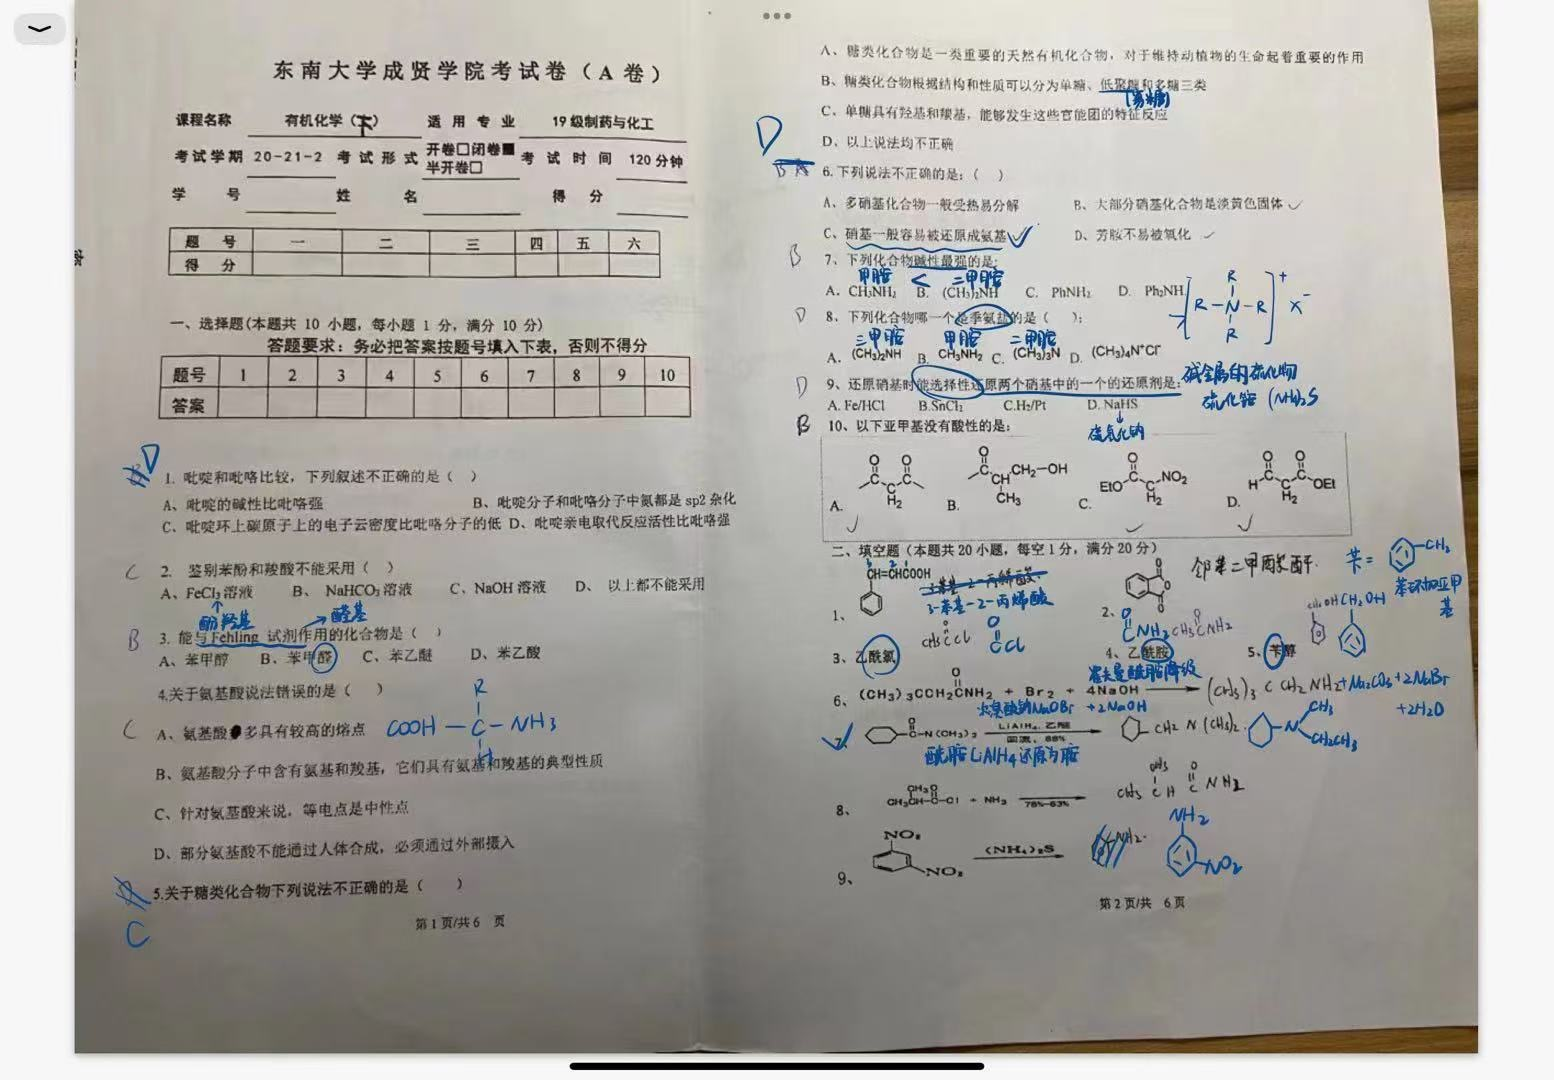 东南大学成贤学院考试卷（A 卷）
课程名称 有机化学（下） 适用专业 19级制药与化工
考试学期 20-21-2 考试形式 开卷□闭卷■半开卷□ 考试时间 120分钟
学号 姓名 得分
题号 一 二 三 四 五 六
得分
一、选择题(本题共 10 小题，每小题 1 分，满分 10 分)
答题要求：务必把答案按题号填入下表，否则不得分
题号 1 2 3 4 5 6 7 8 9 10
答案
D
1. 吡啶和吡咯比较，下列叙述不正确的是（ ）
A、吡啶的碱性比吡咯强 B、吡啶分子和吡咯分子中氮都是 sp2 杂化
C、吡啶环上碳原子上的电子云密度比吡咯分子的低 D、吡啶亲电取代反应活性比吡咯强
C 2. 鉴别苯酚和羧酸不能采用（ ）
A、FeCl₃溶液 B、NaHCO₃溶液 C、NaOH 溶液 D、以上都不能采用
酚羟基 醛基
B 3. 能与 Fehling 试剂作用的化合物是（ ）
A、苯甲醇 B、苯甲醛 C、苯乙醚 D、苯乙酸
4.关于氨基酸说法错误的是（ ）
R
C A、氨基酸多具有较高的熔点 COOH — C — NH3
H
B、氨基酸分子中含有氨基和羧基，它们具有氨基和羧基的典型性质
C、针对氨基酸来说，等电点是中性点
D、部分氨基酸不能通过人体合成，必须通过外部摄入
5.关于糖类化合物下列说法不正确的是（ ）
C
第 1 页/共 6 页
A、糖类化合物是一类重要的天然有机化合物，对于维持动植物的生命起着重要的作用
B、糖类化合物根据结构和性质可以分为单糖、低聚糖和多糖三类
(寡糖)
C、单糖具有羟基和羰基，能够发生这些官能团的特征反应
D
D、以上说法均不正确
6. 下列说法不正确的是：（ ）
A、多硝基化合物一般受热易分解 B、大部分硝基化合物是淡黄色固体 ✓
C、硝基一般容易被还原成氨基 ✓ D、芳胺不易被氧化 ✓
B 7、下列化合物碱性最强的是:
甲胺 < 二甲胺
A. CH₃NH₂ B. (CH₃)₂NH C. PhNH₂ D. Ph₂NH
[R—N—R]⁺ X⁻
R
R
D 8、下列化合物哪一个是季氨盐的是（ ）；
三甲胺 甲胺 二甲胺
A. (CH₃)₂NH B. CH₃NH₂ C. (CH₃)₃N D. (CH₃)₄N⁺Cl⁻
D 9、还原硝基时能选择性还原两个硝基中的一个的还原剂是:
碱金属的硫化物
A. Fe/HCl B.SnCl₂ C.H₂/Pt D. NaHS
硫化铵 (NH₄)₂S
硫氢化钠
B 10、以下亚甲基没有酸性的是:
O O C H₂
O CH CH₂—OH CH₃
O EtO C H₂ NO₂
O O H C H₂ OEt
A. B. C. D.
二、填空题（本题共20小题，每空1分，满分20分）
CH=CHCOOH
3-苯基-2-丙烯酸
邻苯二甲酸酐.
苄= CH₂
苯环加亚甲基
1、 2、
CH₃CCl CCl
CNH₂ CH₃CNH₂
CH₂OH
3、乙酰氯 4、乙酰胺 5、苄醇
霍夫曼酰胺降级
6、(CH₃)₃CCH₂CNH₂ + Br₂ + 4NaOH → (CH₃)₃CCH₂NH₂+Na₂CO₃+2NaBr
+2H₂O
次溴酸钠NaOBr +2NaOH
7、 C—N(CH₃)₂ LiAlH₄, 乙醚 回流, 88% CH₂N(CH₃)₂. N CH₃ CH₂CH₃
酰胺LiAlH4还原为胺
8、 CH₃CH—C—Cl + NH₃ 78%-83% CH₃ C H C NH₂
9、 NO₂ NO₂ (NH₄)₂S NH₂ NO₂
第 2 页/共 6 页